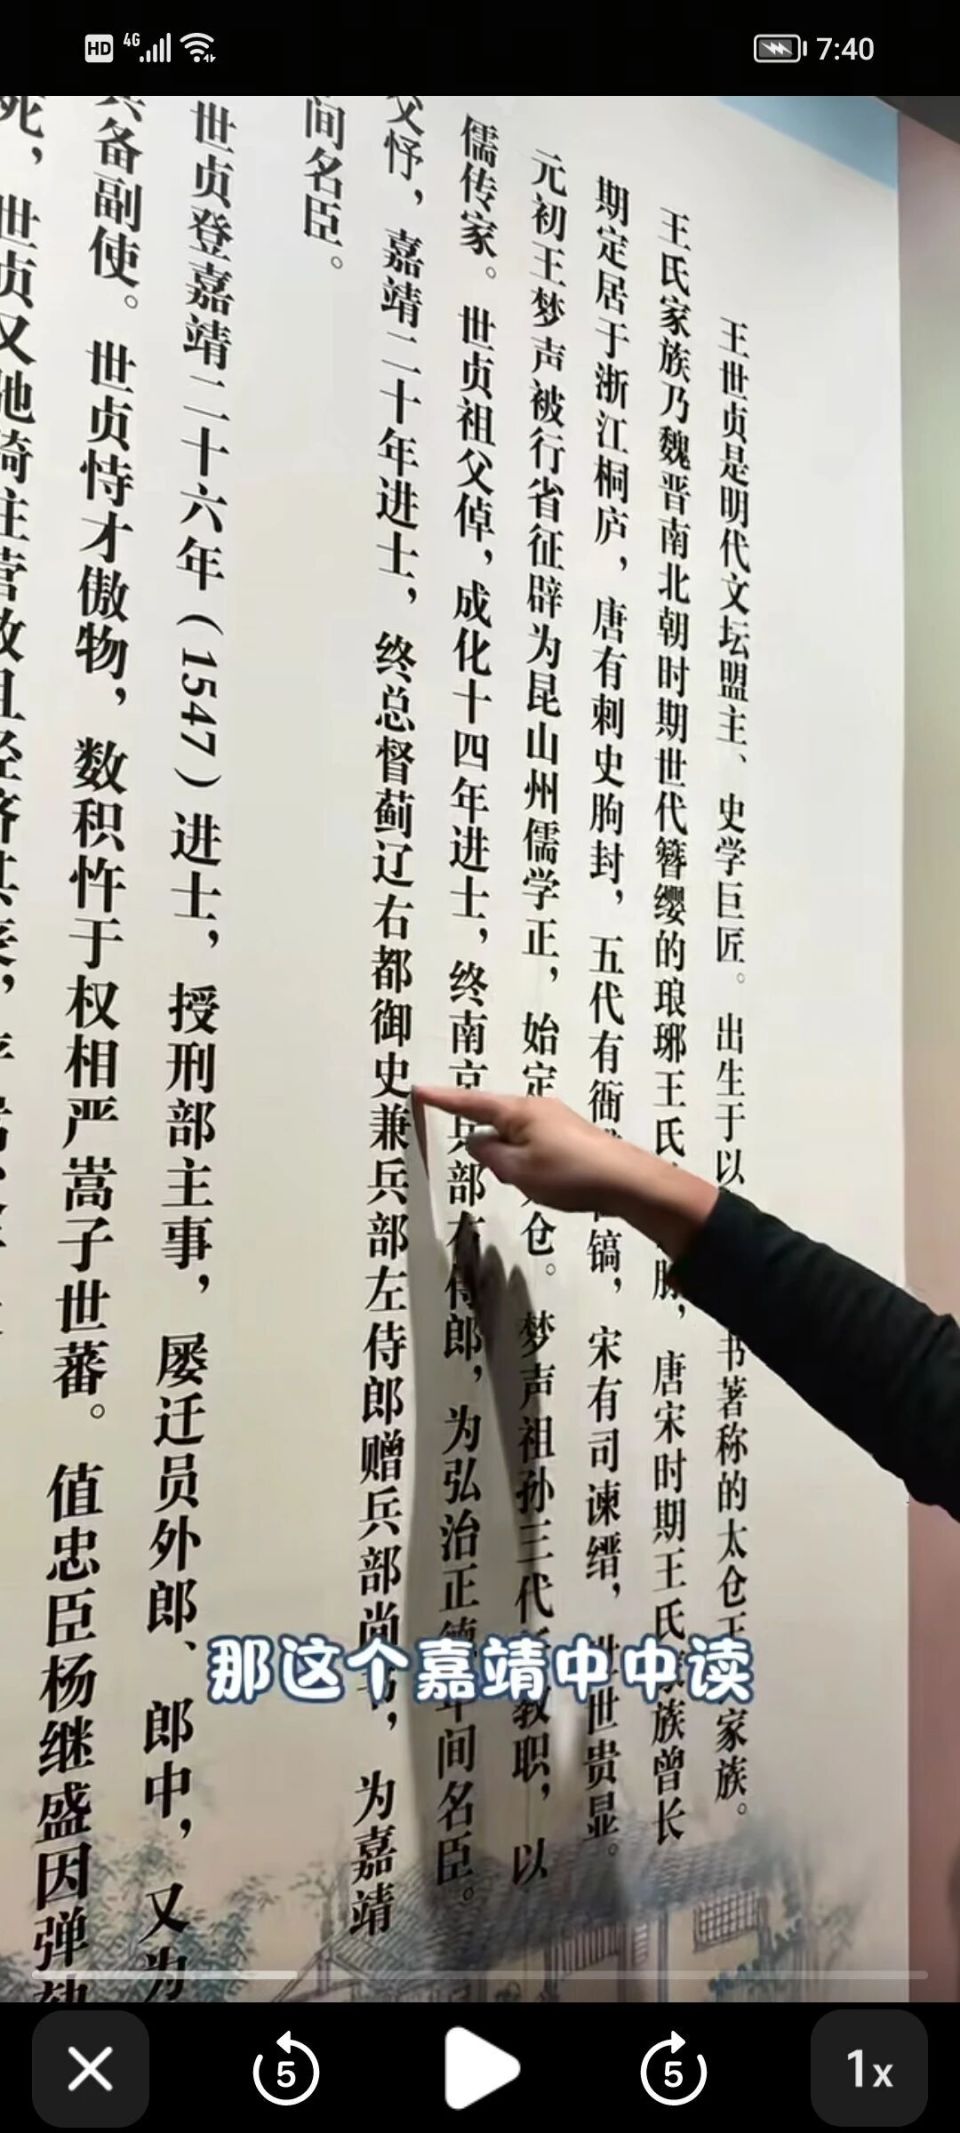 HD 4G 7:40
王世贞是明代文坛盟主、史学巨匠。出生于以 书著称的太仓王 家族。
王氏家族乃魏晋南北朝时期世代簪缨的琅琊王氏 脉，唐宋时期王氏 族曾长
期定居于浙江桐庐，唐有刺史朐封，五代有衙 镐，宋有司谏缙， 世贵显。
元初王梦声被行省征辟为昆山州儒学正，始定 仓。梦声祖孙三代 教职，以
儒传家。世贞祖父倬，成化十四年进士，终南京兵部右侍郎，为弘治正德年间名臣。
父忬，嘉靖二十年进士，终总督蓟辽右都御史兼兵部左侍郎赠兵部尚 ，为嘉靖
间名臣。
世贞登嘉靖二十六年（1547）进士，授刑部主事，屡迁员外郎、郎中，又为
兵备副使。世贞恃才傲物，数积忤于权相严嵩子世蕃。值忠臣杨继盛因弹劾
死，世贞又驰骑往营救且经济其丧，
那这个嘉靖中中读
5 5 1x